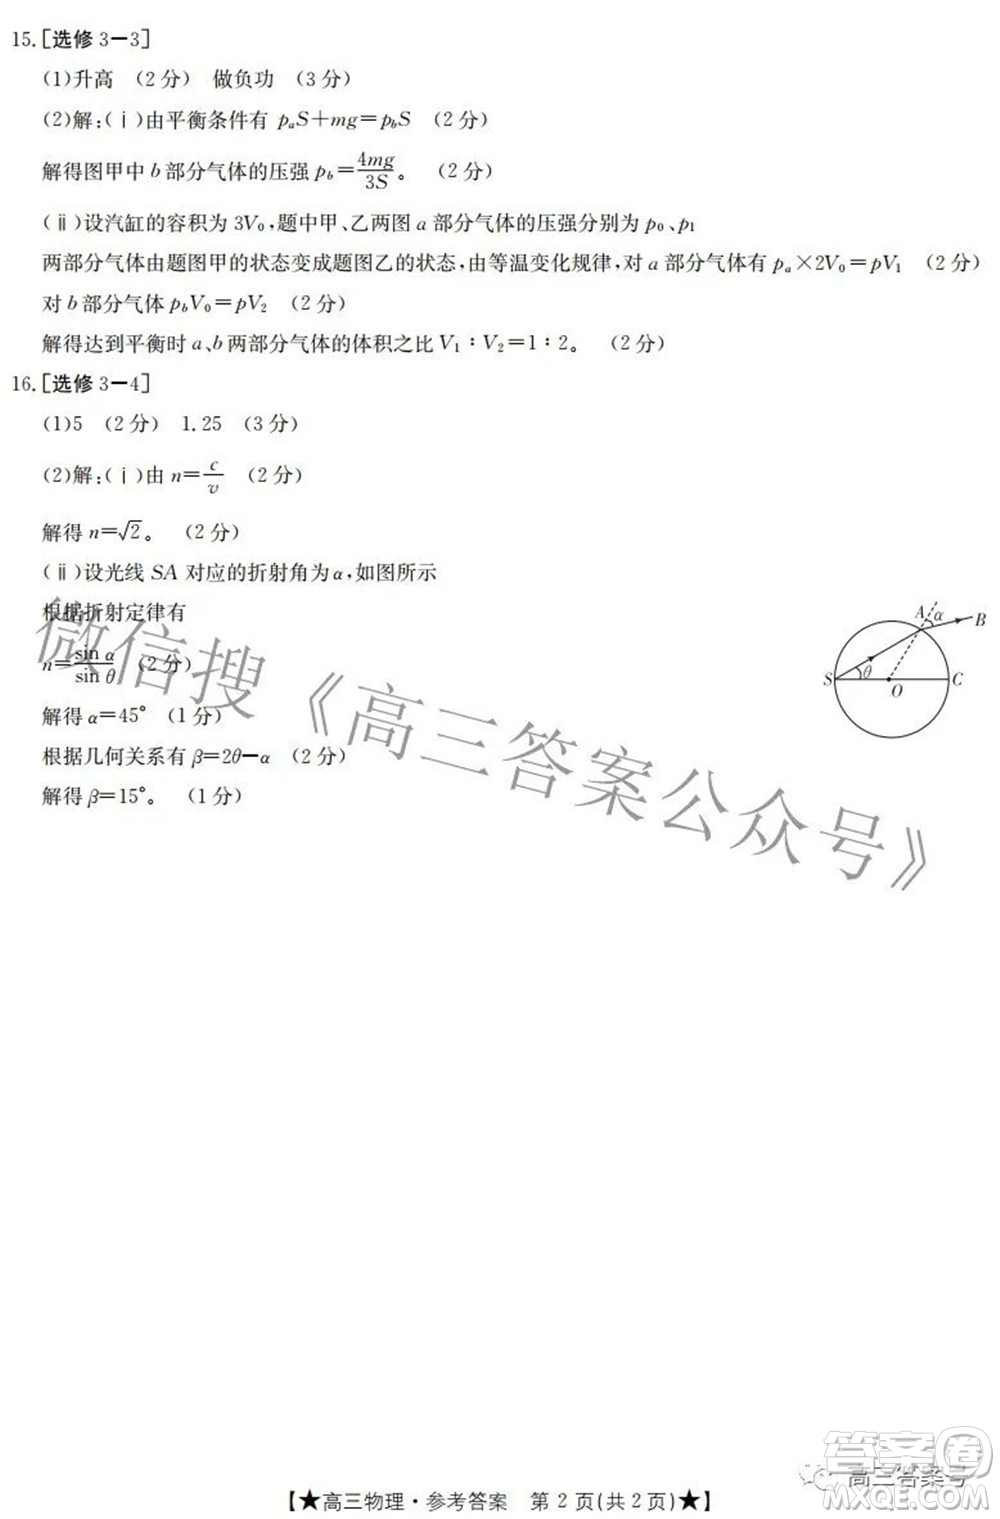 15.[选修 3－3]
(1)升高 （2 分） 做负功 （3 分）
(2)解:(ⅰ)由平衡条件有 pₐS＋mg＝p_bS （2 分）
解得图甲中 b 部分气体的压强 p_b＝4mg/3S。 （2 分）
(ⅱ)设汽缸的容积为 3V₀,题中甲、乙两图 a 部分气体的压强分别为 p₀、p₁
两部分气体由题图甲的状态变成题图乙的状态,由等温变化规律,对 a 部分气体有 pₐ×2V₀＝pV₁ （2 分）
对 b 部分气体 p_bV₀＝pV₂ （2 分）
解得达到平衡时 a、b 两部分气体的体积之比 V₁∶V₂＝1∶2。 （2 分）
16.[选修 3－4]
(1)5 （2 分） 1.25 （3 分）
(2)解:(ⅰ)由 n＝c/v （2 分）
解得 n＝√2。 （2 分）
(ⅱ)设光线 SA 对应的折射角为 α,如图所示
根据折射定律有
n＝sin α/sin θ （2 分）
解得 α＝45° （1 分）
根据几何关系有 β＝2θ－α （2 分）
解得 β＝15°。 （1 分）
A α B
S θ O C
微信搜《高三答案公众号》
答案卷
高三答案号
【★高三物理·参考答案 第 2 页(共 2 页)★】